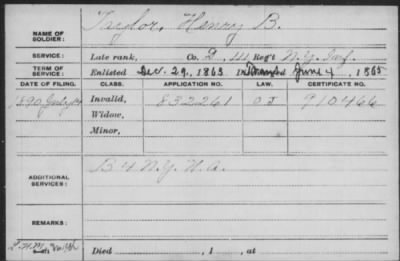 NAME OF SOLDIER: Taylor, Henry B.
SERVICE: Late rank, Co. D, 111 Reg't N.Y. Inf.
TERM OF SERVICE: Enlisted Dec. 29, 1863 June 4, 1865
DATE OF FILING. CLASS. APPLICATION NO. LAW. CERTIFICATE NO.
1890 July Invalid, 832261 910466
Widow,
Minor,
ADDITIONAL SERVICES: B 4 N.Y. H.A.
REMARKS:
Died , 1 , at